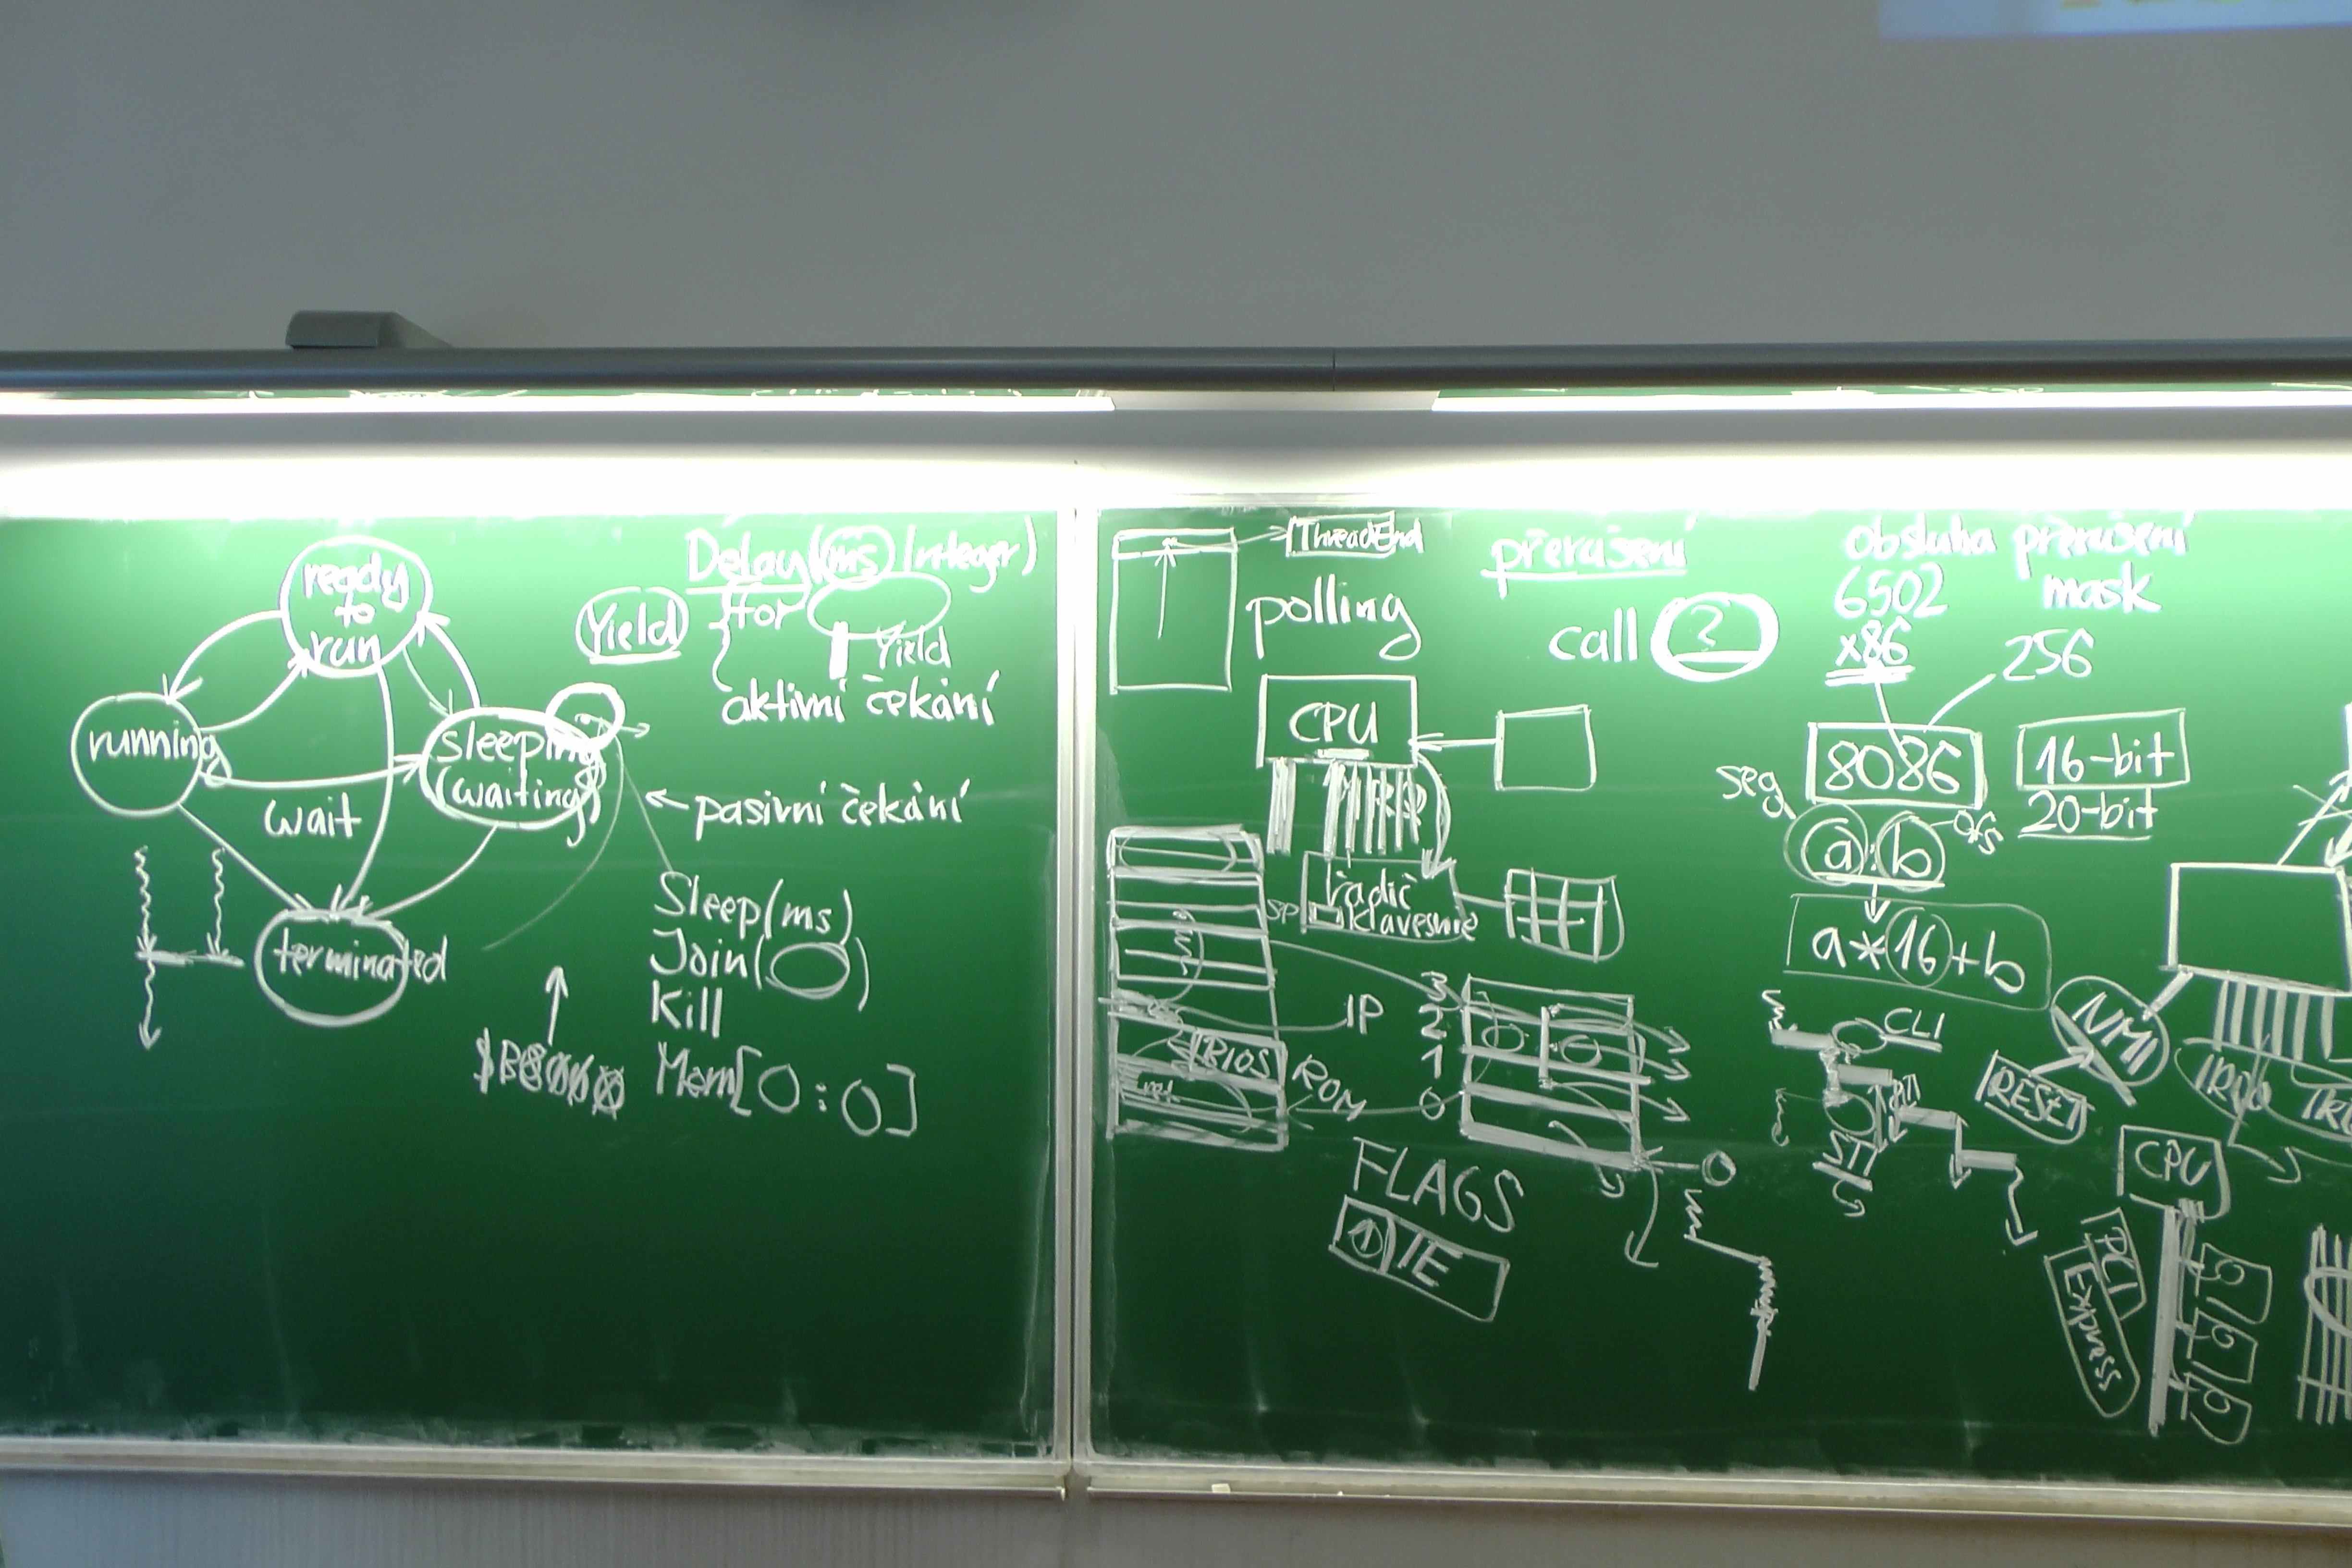 ready
to
run
running
sleeping
(waiting)
wait
terminated
Yield
Delay(ms Integer)
for
Yield
aktivní čekání
← pasivní čekání
Sleep(ms)
Join( )
Kill
Mem[0:0]
ThreadEnd
polling
přerušení
call ?
obsluha přerušení
6502
mask
x86
256
CPU
8086
16-bit
20-bit
seg
a:b
ofs
a*16+b
řadič
klávesnice
SP
IP
3
2
1
0
BIOS
ROM
ret
FLAGS
1 IE
0
CLI
STI
NMI
RESET
IRQ0
CPU
PCI
Express